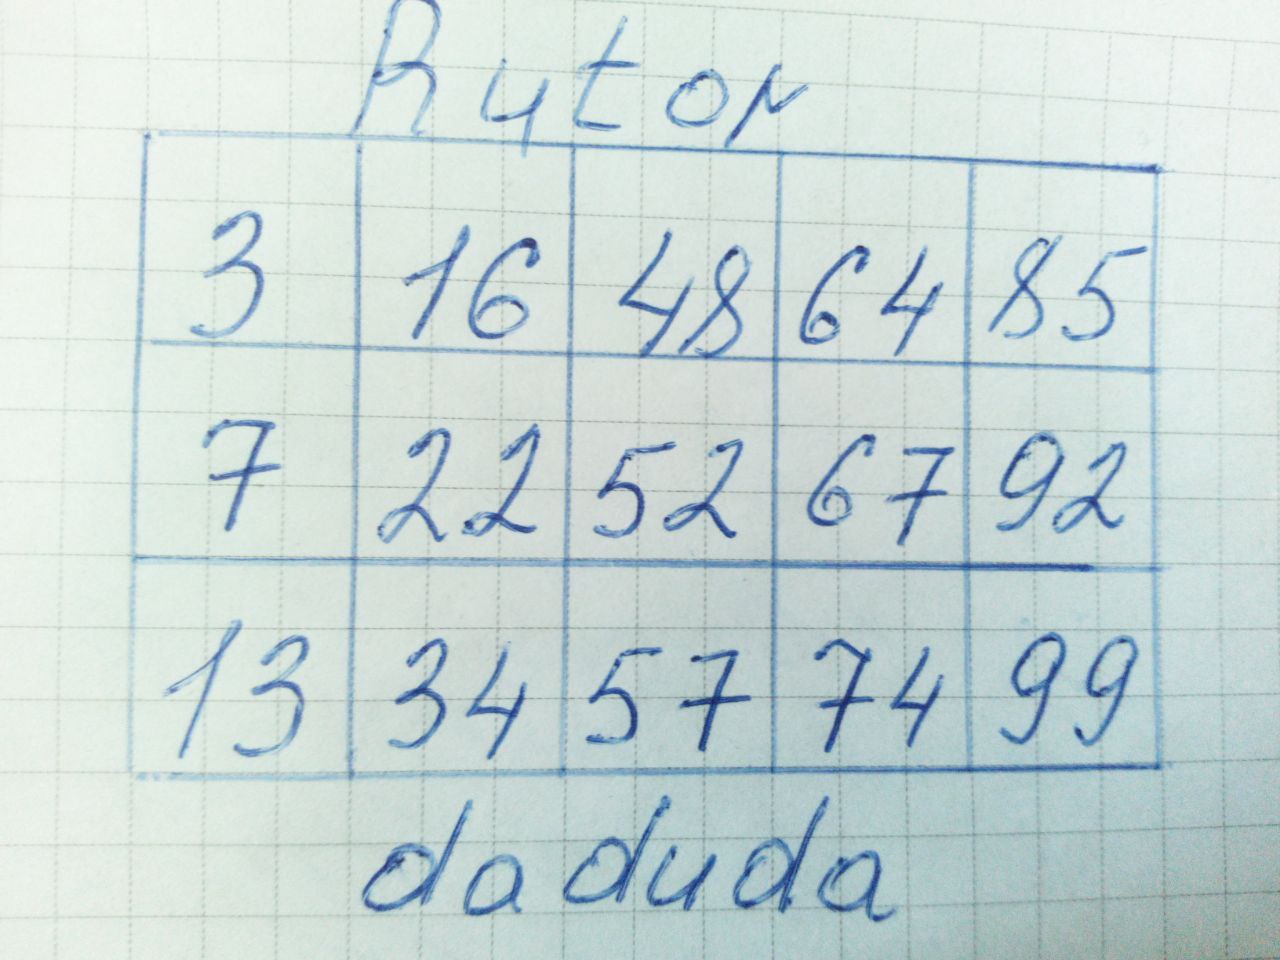 Rytor
3 16 48 64 85
7 22 52 67 92
13 34 57 74 99
daduda